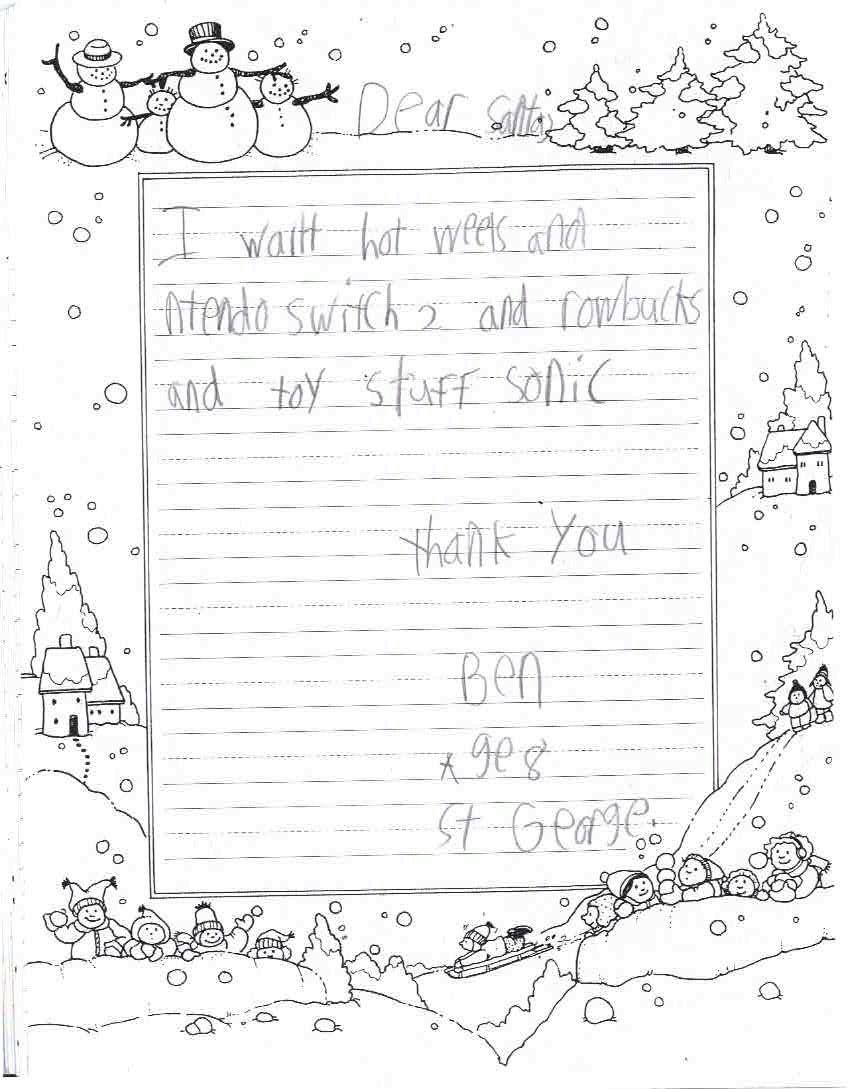 Dear Santa,
I wantt hot weels and
ntendo switch 2 and rowbucks
and toy stuff sonic
thank you
Ben
Age 8
St George.